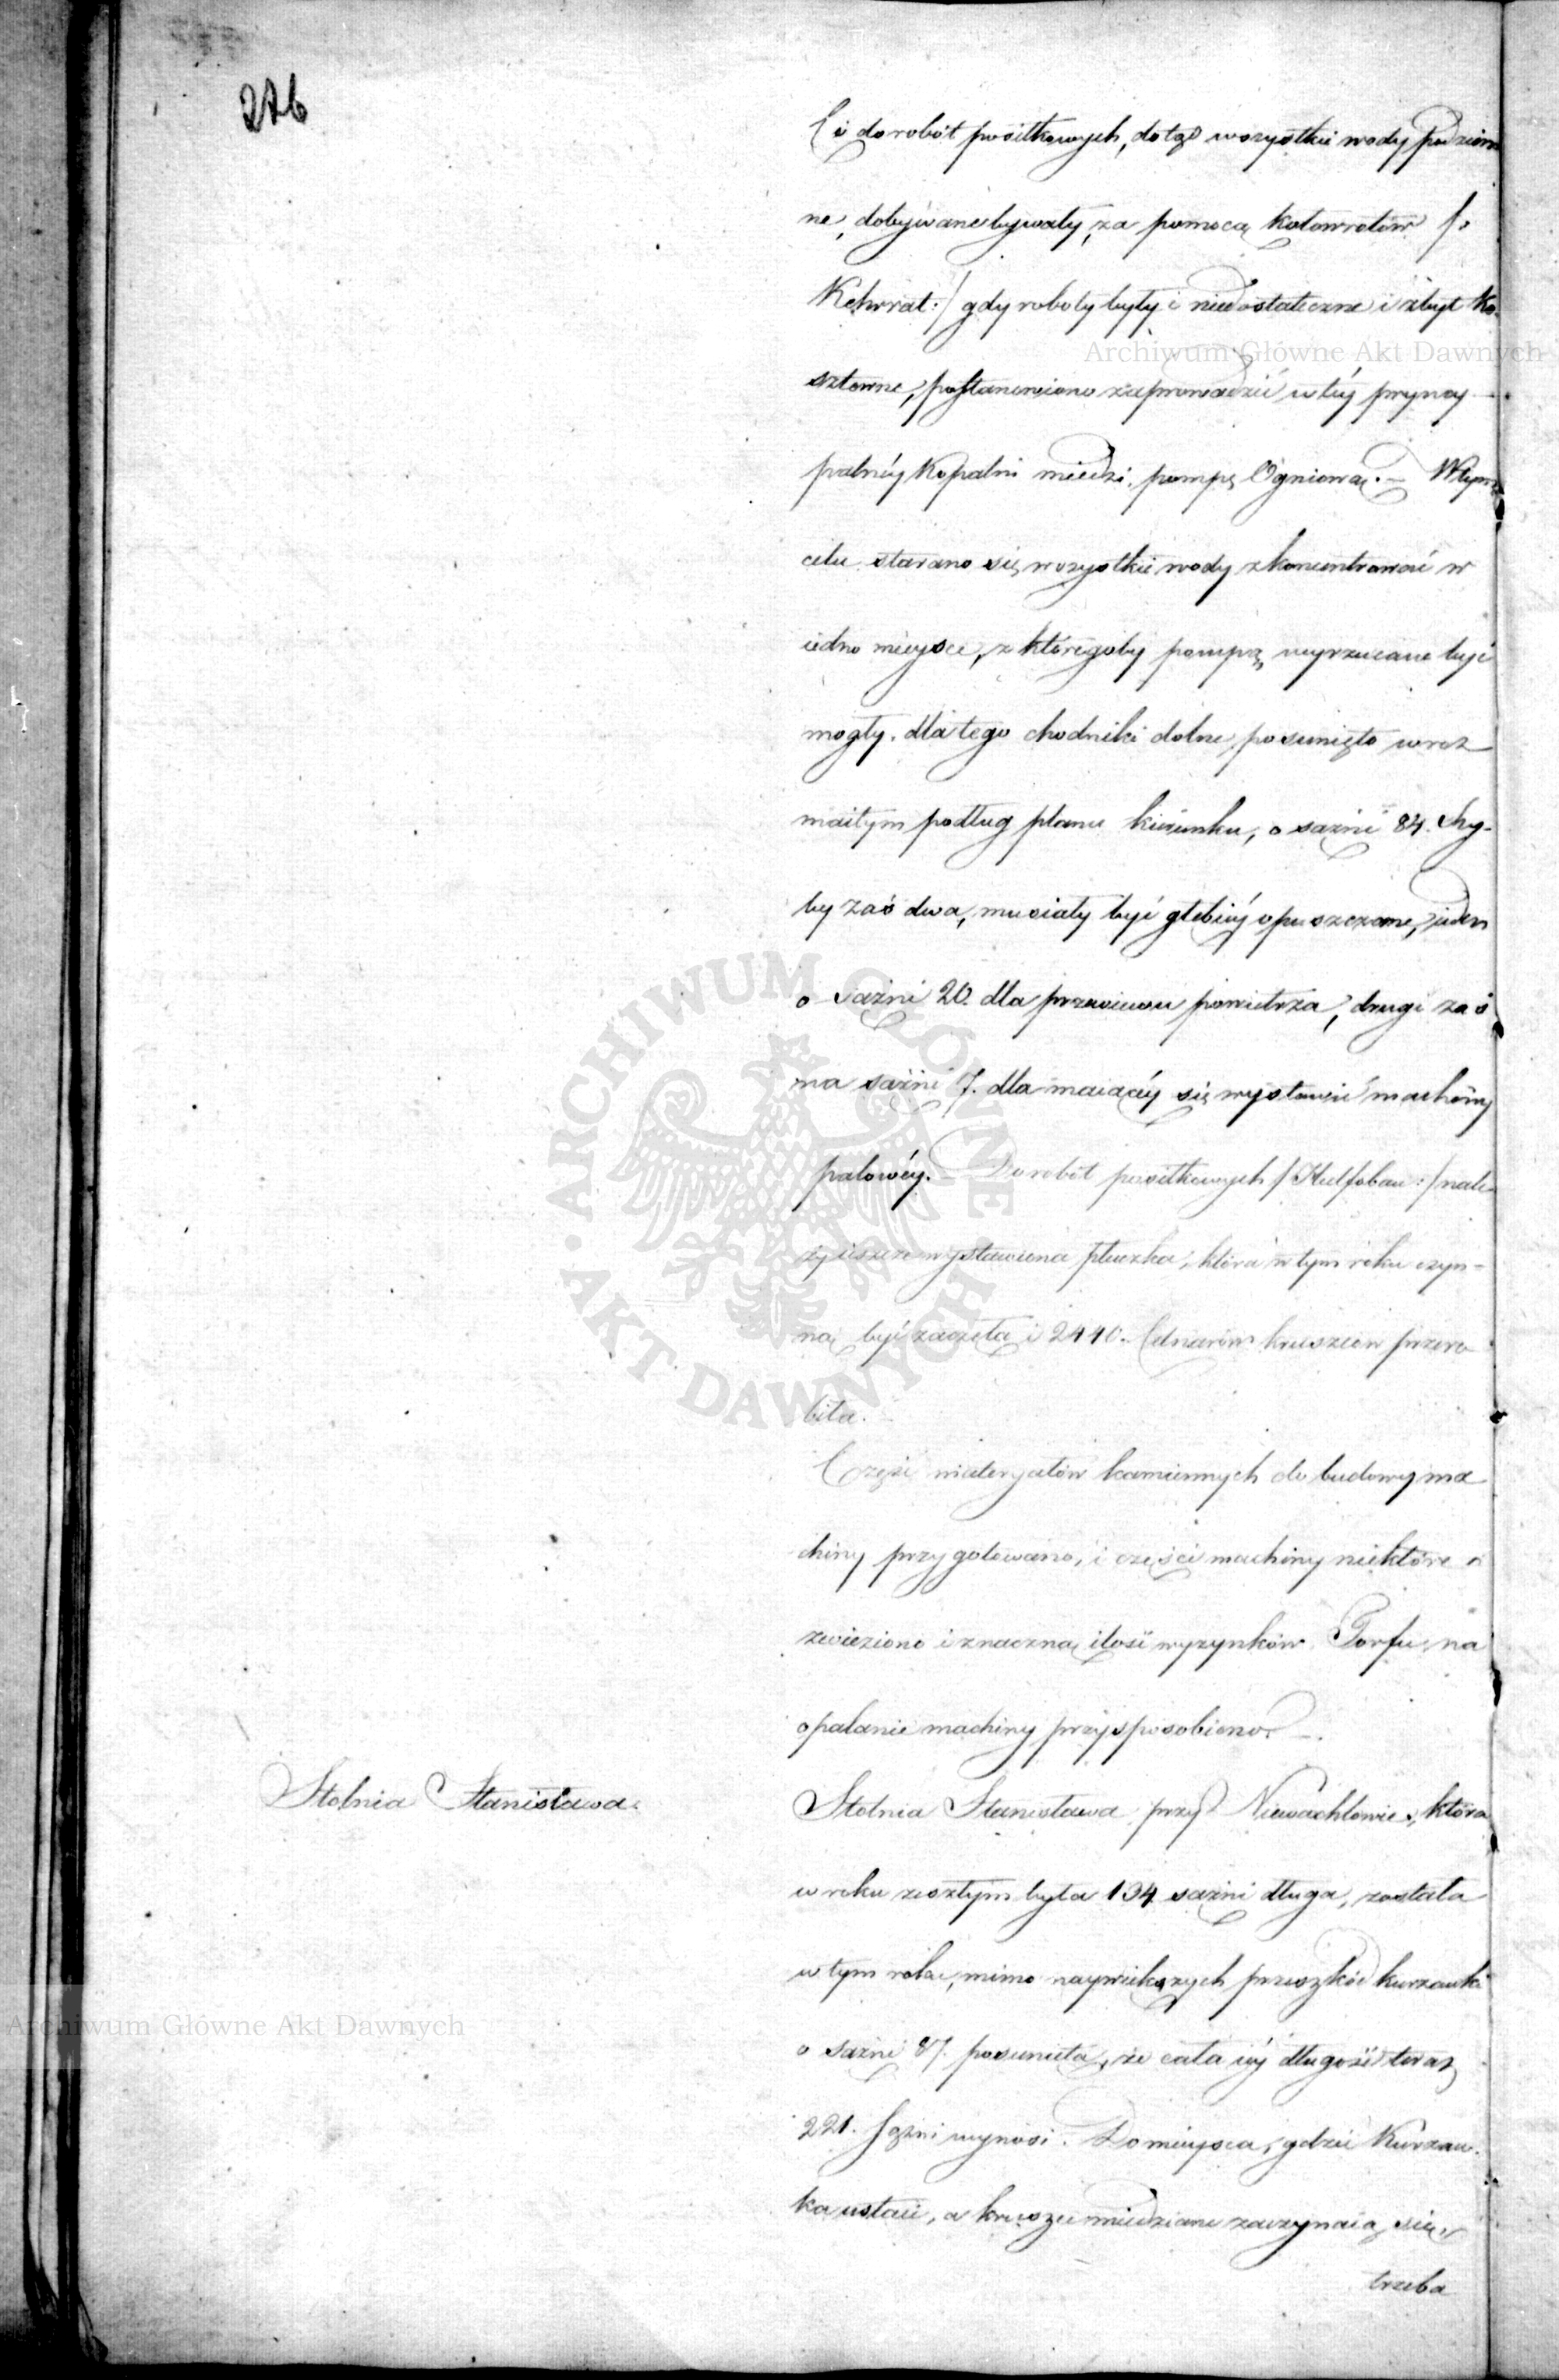 276
Co do robót posiłkowych, dotąd wszystkie wody podziem
ne, dobywane bywały, za pomocą kołowrotów /:
Kehrrat:/ gdy roboty były i niedostateczne i zbyt ko-
sztowne, postanowiono zaprowadzić w téy pryncy-
palnéy Kopalni miedzi, pompę Ogniową. – W tym
celu starano się wszystkie wody skoncentrować w
iedno mieysce, z któregoby pompą wyrzucane być
mogły. dla tego chodniki dolne posunięto w roz
maitym podług planu kierunku, o sążni 84. Szy-
by zaś dwa, musiały być głębiéy opuszczone, ieden
o sążni 20. dla przewiewu powietrza, drugi zaś
na sążni 7. dla maiącéy się wystawić machiny
palowéy. Do robót posiłkowych /: Hulfsbau :/ nale-
ży ieszcze wystawiona płuczka, która w tym roku czyn-
ną być zaczęła i 2440. Cetnarów kruszców przero
biła.
Część materyałów kamiennych do budowy ma
chiny przygotowano, i części machiny niektóre
zwieziono i znaczną ilość wyrzynków Torfu na
opalanie machiny przysposobiono. –
Stolnia Stanisława.
Stolnia Stanisława przy Niewachlowie, która
w roku zeszłym była 134 sążni długa, została
w tym roku, mimo naywiększych przeszkód kurzawki
o sążni 87. posunięta, że cała iéy długość teraz
221. Sążni wynosi. Do mieysca, gdzie Kurzaw-
ka ustaie, a kruszce miedziane zaczynaią się,
trzeba
Archiwum Główne Akt Dawnych
ARCHIWUM GŁÓWNE AKT DAWNYCH
Archiwum Główne Akt Dawnych